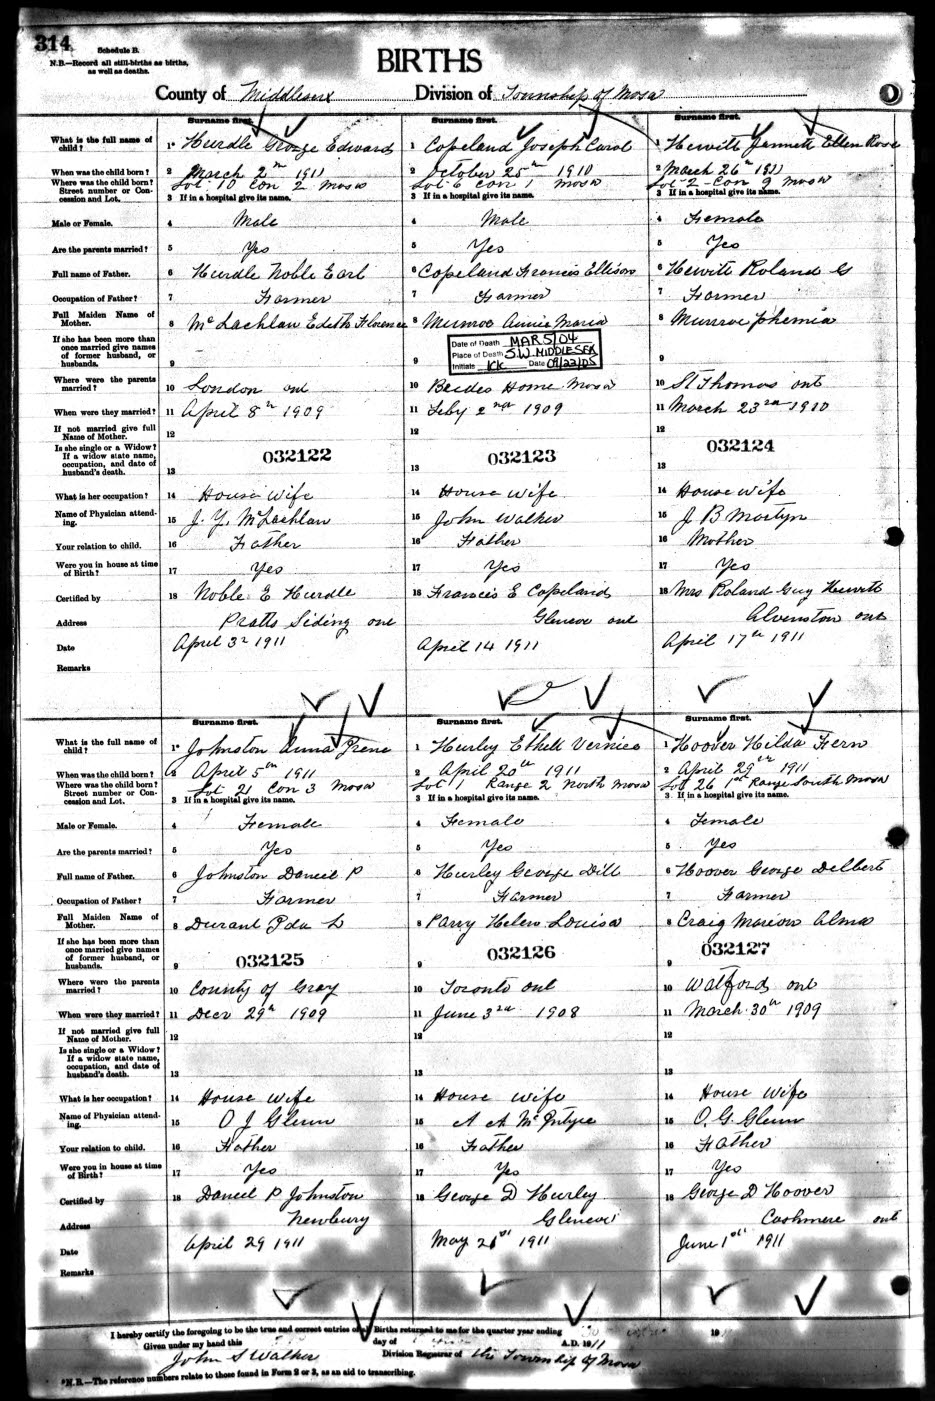 314
Schedule B.
N.B.—Record all still-births as births,
as well as deaths.
BIRTHS
County of Middlesex Division of Township of Mosa
Surname first. Surname first. Surname first.
What is the full name of child? 1* Hurdle George Edward 1 Copeland Joseph Carol 1 Hewitt Jannett Ellen Rose
When was the child born? 2 March 2nd 1911 2 October 25th 1910 2 March 26th 1911
Where was the child born? Street number or Concession and Lot. Lot 10 Con 2 Mosa Lot 6 Con 1 Mosa Lot 2 - Con 9 Mosa
3 If in a hospital give its name. 3 If in a hospital give its name. 3 If in a hospital give its name.
Male or Female. 4 Male 4 Male 4 Female
Are the parents married? 5 Yes 5 Yes 5 Yes
Full name of Father. 6 Hurdle Noble Earl 6 Copeland Francis Ellison 6 Hewitt Roland G
Occupation of Father? 7 Farmer 7 Farmer 7 Farmer
Full Maiden Name of Mother. 8 McLachlan Edith Florence 8 Munroe Annie Maria 8 Munroe Phemia
If she has been more than once married give names of former husband, or husbands. 9 9 9
Date of Death MAR 5/04
Place of Death S.W. MIDDLESEX
Initials KK Date 09/22/05
Where were the parents married? 10 London ont 10 Brides Home Mosa 10 St Thomas ont
When were they married? 11 April 8th 1909 11 Feby 2nd 1909 11 March 23rd 1910
If not married give full Name of Mother. 12 12 12
Is she single or a Widow? If a widow state name, occupation, and date of husband's death. 13 032122 13 032123 13 032124
What is her occupation? 14 House wife 14 House wife 14 House wife
Name of Physician attending. 15 J. Y. McLachlan 15 John Walker 15 J B Martyn
Your relation to child. 16 Father 16 Father 16 Mother
Were you in house at time of Birth? 17 Yes 17 Yes 17 Yes
Certified by 18 Noble E Hurdle 18 Francis E Copeland 18 Mrs Roland Guy Hewitt
Address Pratts Siding ont Glencoe ont Alvinston ont
Date April 3rd 1911 April 14 1911 April 17th 1911
Remarks
Surname first. Surname first. Surname first.
What is the full name of child? 1* Johnston Anna Irene 1 Hurley Ethell Vernice 1 Hoover Hilda Fern
When was the child born? 2 April 5th 1911 2 April 20th 1911 2 April 29th 1911
Where was the child born? Street number or Concession and Lot. Lot 21 Con 3 Mosa Lot 1 Range 2 North Mosa Lot 26 1st Range South Mosa
3 If in a hospital give its name. 3 If in a hospital give its name. 3 If in a hospital give its name.
Male or Female. 4 Female 4 Female 4 Female
Are the parents married? 5 Yes 5 Yes 5 Yes
Full name of Father. 6 Johnston Daniel P 6 Hurley George Dill 6 Hoover George Delbert
Occupation of Father? 7 Farmer 7 Farmer 7 Farmer
Full Maiden Name of Mother. 8 Durant Ida L 8 Parry Helen Louisa 8 Craig Marion Alma
If she has been more than once married give names of former husband, or husbands. 9 032125 9 032126 9 032127
Where were the parents married? 10 County of Gray 10 Toronto ont 10 Watford ont
When were they married? 11 Decr 29th 1909 11 June 3rd 1908 11 March 30th 1909
If not married give full Name of Mother. 12 12 12
Is she single or a Widow? If a widow state name, occupation, and date of husband's death. 13 13 13
What is her occupation? 14 House wife 14 House wife 14 House wife
Name of Physician attending. 15 O J Glenn 15 A A McIntyre 15 O. G. Glenn
Your relation to child. 16 Father 16 Father 16 Father
Were you in house at time of Birth? 17 Yes 17 Yes 17 Yes
Certified by 18 Daniel P Johnston 18 George D Hurley 18 George D Hoover
Address Newbury Glencoe Cashmere ont
Date April 29 1911 May 21st 1911 June 1st 1911
Remarks
I hereby certify the foregoing to be the true and correct entries of all Births returned to me for the quarter year ending 19
Given under my hand this day of A.D. 1911
John S Walker Division Registrar of the Township of Mosa
*N.B.—The reference numbers relate to those found in Form 2 or 3, as an aid to transcribing.